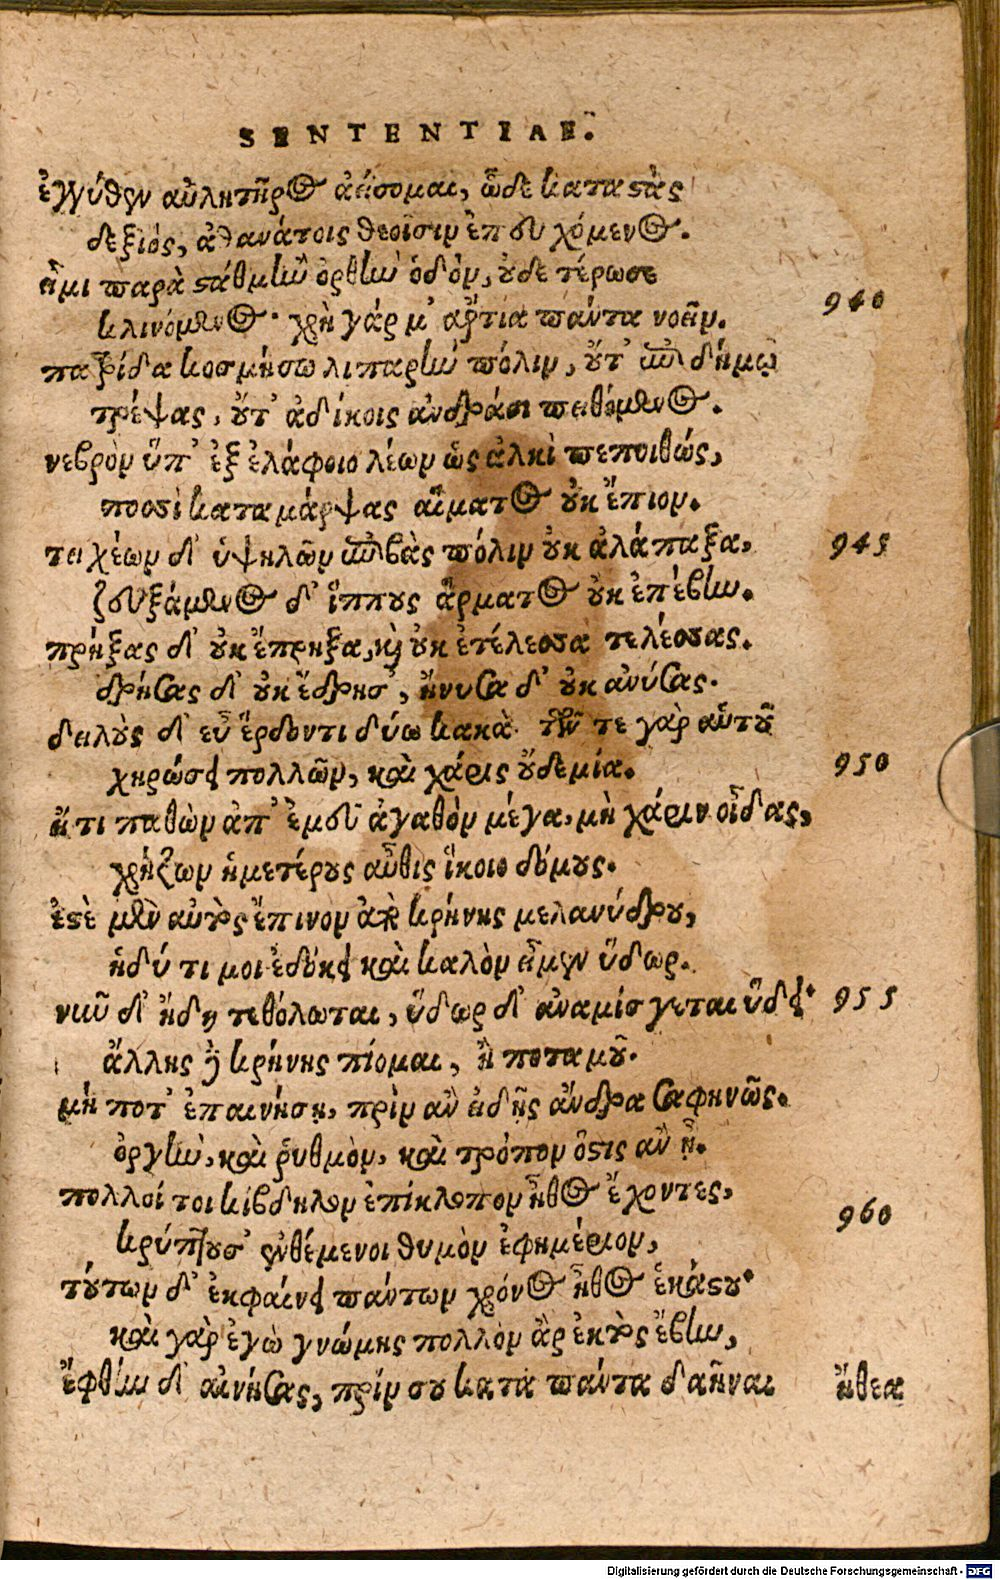 SENTENTIAE.
ἐγγύθεν αὐλητῆρος ἀείσομαι, ὧδε καταστὰς
δεξιός, ἀθανάτοις θεοῖσιν ἐπευχόμενος.
εἶμι παρὰ στάθμην ὀρθὴν ὁδόν, οὐδετέρωσε 940
κλινόμενος· χρὴ γάρ μ' ἄρτια πάντα νοεῖν.
πατρίδα κοσμήσω λιπαρὴν πόλιν, οὔτ' ἐπὶ δήμῳ
τρέψας, οὔτ' ἀδίκοις ἀνδράσι πειθόμενος.
νεβρὸν ὕπ' ἐξ ἐλάφοιο λέων ὣς ἀλκὶ πεποιθώς,
ποσσὶ καταμάρψας αἵματος οὐκ ἔπιον.
τειχέων δ' ὑψηλῶν ἐπιβὰς πόλιν οὐκ ἀλάπαξα, 945
ζευξάμενος δ' ἵππους ἅρματος οὐκ ἐπέβην.
πρήξας δ' οὐκ ἔπρηξα, καὶ οὐκ ἐτέλεσσα τελέσσας.
δρήσας δ' οὐκ ἔδρησ', ἤνυσα δ' οὐκ ἀνύσας.
δειλοὺς δ' εὖ ἕρδοντι δύω κακὰ· τῶν τε γὰρ αὑτοῦ
χηρώσει πολλῶν, καὶ χάρις οὐδεμία. 950
ἤ τι παθὼν ἀπ' ἐμεῦ ἀγαθὸν μέγα, μὴ χάριν οἶδας,
χρῄζων ἡμετέρους αὖθις ἵκοιο δόμους.
ἔστε μὲν αὐτὸς ἔπινον ἀπὸ κρήνης μελανύδρου,
ἡδύ τι μοι ἐδόκει καὶ καλὸν εἶμεν ὕδωρ.
νῦν δ' ἤδη τεθόλωται, ὕδωρ δ' ἀναμίσγεται ὕδει· 955
ἄλλης δὴ κρήνης πίομαι, ἢ ποταμοῦ.
μή ποτ' ἐπαινήσῃς, πρὶν ἂν εἰδῇς ἄνδρα σαφηνῶς.
ὀργὴν, καὶ ῥυθμὸν, καὶ τρόπον ὅστις ἂν ᾖ.
πολλοί τοι κίβδηλον ἐπίκλοπον ἦθος ἔχοντες,
κρύπτουσ' ἐνθέμενοι θυμὸν ἐφημέριον, 960
τούτων δ' ἐκφαίνει πάντων χρόνος ἦθος ἑκάστου·
καὶ γὰρ ἐγὼ γνώμης πολλὸν ἂρ ἐκτὸς ἔβην,
ἔφθην δ' αἰνήσας, πρίν σου κατὰ πάντα δαῆναι
ἤθεα
Digitalisierung gefördert durch die Deutsche Forschungsgemeinschaft - DFG